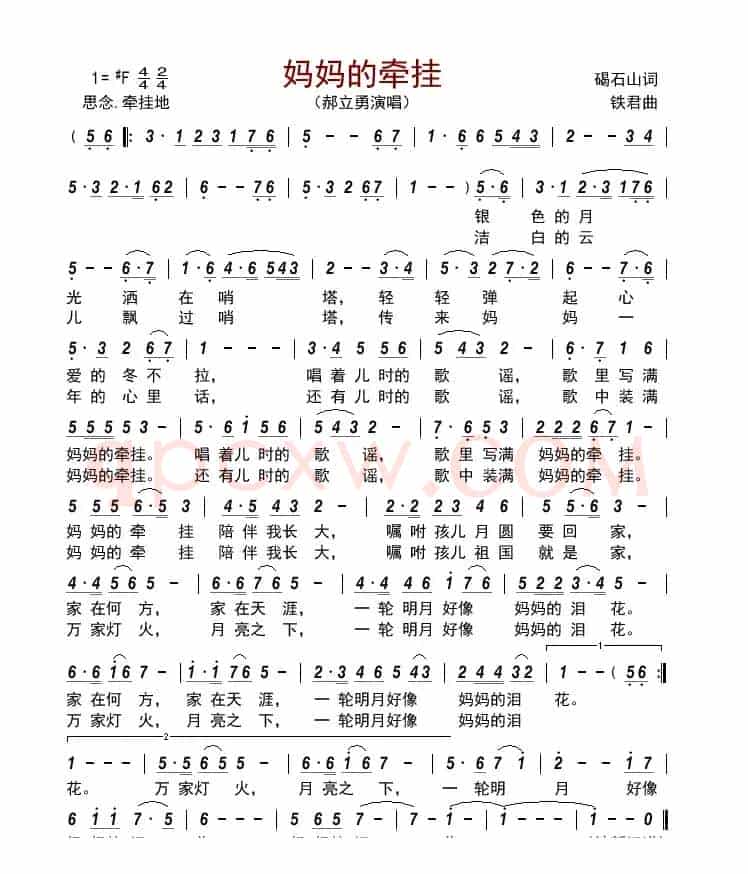 1= #F 4/4 2/4 妈妈的牵挂 碣石山词
思念.牵挂地 （郝立勇演唱） 铁君曲
( 5 6 ‖: 3 · 1 2 3 1 7 6 | 5 - - 6 7 | 1 · 6 6 6 5 4 3 | 2 - - 3 4 |
5 · 3 2 · 1 6 2 | 6 - - 7 6 | 5 · 3 2 6 7 | 1 - - ) 5 · 6 | 3 · 1 2 · 3 1 7 6 |
银 色 的 月
洁 白 的 云
5 - - 6 · 7 | 1 · 6 4 · 6 5 4 3 | 2 - - 3 · 4 | 5 · 3 2 3 2 · 7 | 6 - - 5 6 |
光 洒 在 哨 塔， 轻 轻 弹 起 心
儿 飘 过 哨 塔， 传 来 妈 妈 一
5 · 3 2 6 7 | 1 - - | 3 · 4 5 5 6 | 5 4 3 2 - | 6 · 7 5 6 |
爱 的 冬 不 拉， 唱 着 儿 时 的 歌 谣， 歌 里 写 满
年 的 心 里 话， 还 有 儿 时 的 歌 谣， 歌 中 装 满
5 5 5 5 3 - | 5 · 6 1 5 6 | 3 4 5 2 - | 7 · 6 5 3 5 | 2 2 2 6 7 1 - |
妈妈的牵挂。 唱 着 儿 时 的 歌 谣， 歌 里 写 满 妈妈的牵 挂。
妈妈的牵挂。 还 有 儿 时 的 歌 谣， 歌 中 装 满 妈妈的牵 挂。
qpcxw.COM
5 5 5 6 · 5 3 | 4 · 5 4 3 2 - | 2 · 2 2 3 4 | 6 · 5 5 6 5 - |
妈 妈的 牵 挂 陪 伴 我长 大， 嘱 咐 孩儿 月 圆 要 回 家，
妈 妈的 牵 挂 陪 伴 我长 大， 嘱 咐 孩儿 祖 国 就 是 家，
4 · 4 5 6 5 - | 6 · 5 2 3 2 - | 3 · 4 4 6 1 7 6 | 5 2 2 2 3 · 4 5 - |
家 在何 方， 家 在天 涯， 一 轮 明月 好像 妈妈的 泪 花。
万 家灯 火， 月 亮之 下， 一 轮 明月 好像 妈妈的 泪 花。
6 · 6 1 6 7 - | 1 · 1 7 6 5 - | 3 · 4 4 6 5 4 3 | 2 4 4 4 3 2 | 1 1 - - ( 5 6 :‖
家 在何 方， 家 在天 涯， 一 轮明月好像 妈妈的泪 花。
万 家灯 火， 月 亮之 下， 一 轮明月好像 妈妈的泪
2
1 - - | 5 · 5 6 5 7 | 6 · 6 1 6 7 | 5 · 5 6 7 6 | 2 - - 1 7 |
花。 万 家灯 火， 月 亮之 下， 一 轮明 月 好像
6 1 1 7 · 5 | 6 5 - - | 6 1 1 7 · 6 | 1 - - - | 1 - - 0 ‖